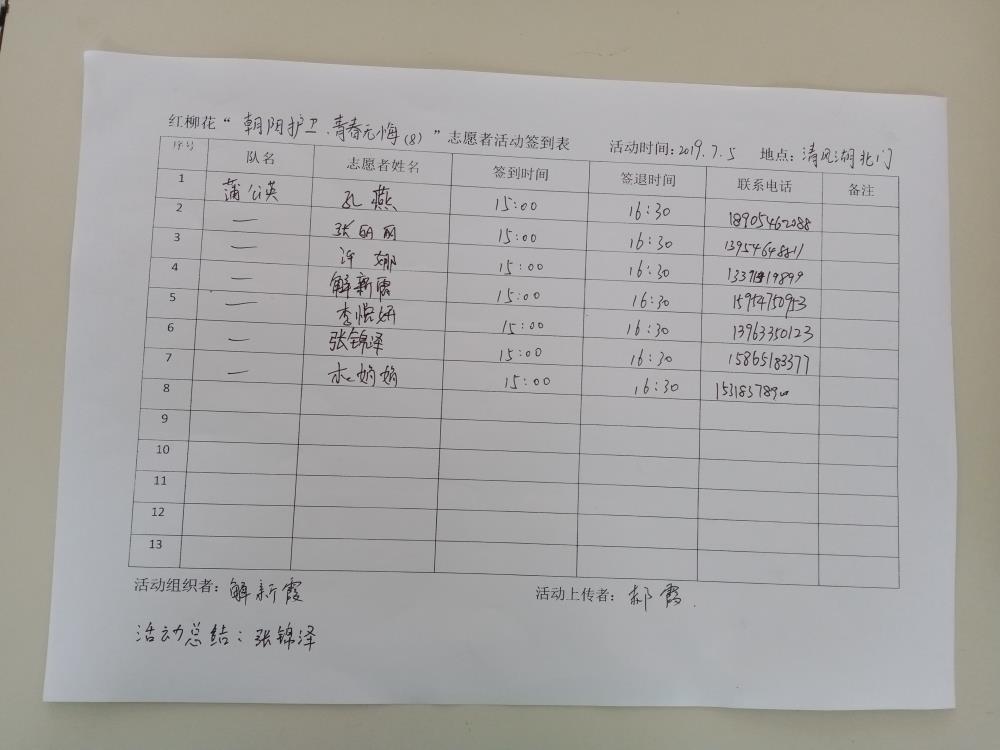 红柳花“朝阳护卫.青春无悔(8)”志愿者活动签到表 活动时间:2019.7.5 地点:清风湖北门
序号 队名 志愿者姓名 签到时间 签退时间 联系电话 备注
1 蒲公英 孔燕 15:00 16:30 18905462088
2 — 张丽丽 15:00 16:30 13954648811
3 — 许娜 15:00 16:30
4 — 解新霞 15:00 16:30
5 — 李悦妍 15:00 16:30 13963350123
6 — 张锦泽 15:00 16:30 15865183377
7 — 娟娟 15:00 16:30
8
9
10
11
12
13
活动组织者:解新霞 活动上传者:郝霞.
活动总结:张锦泽